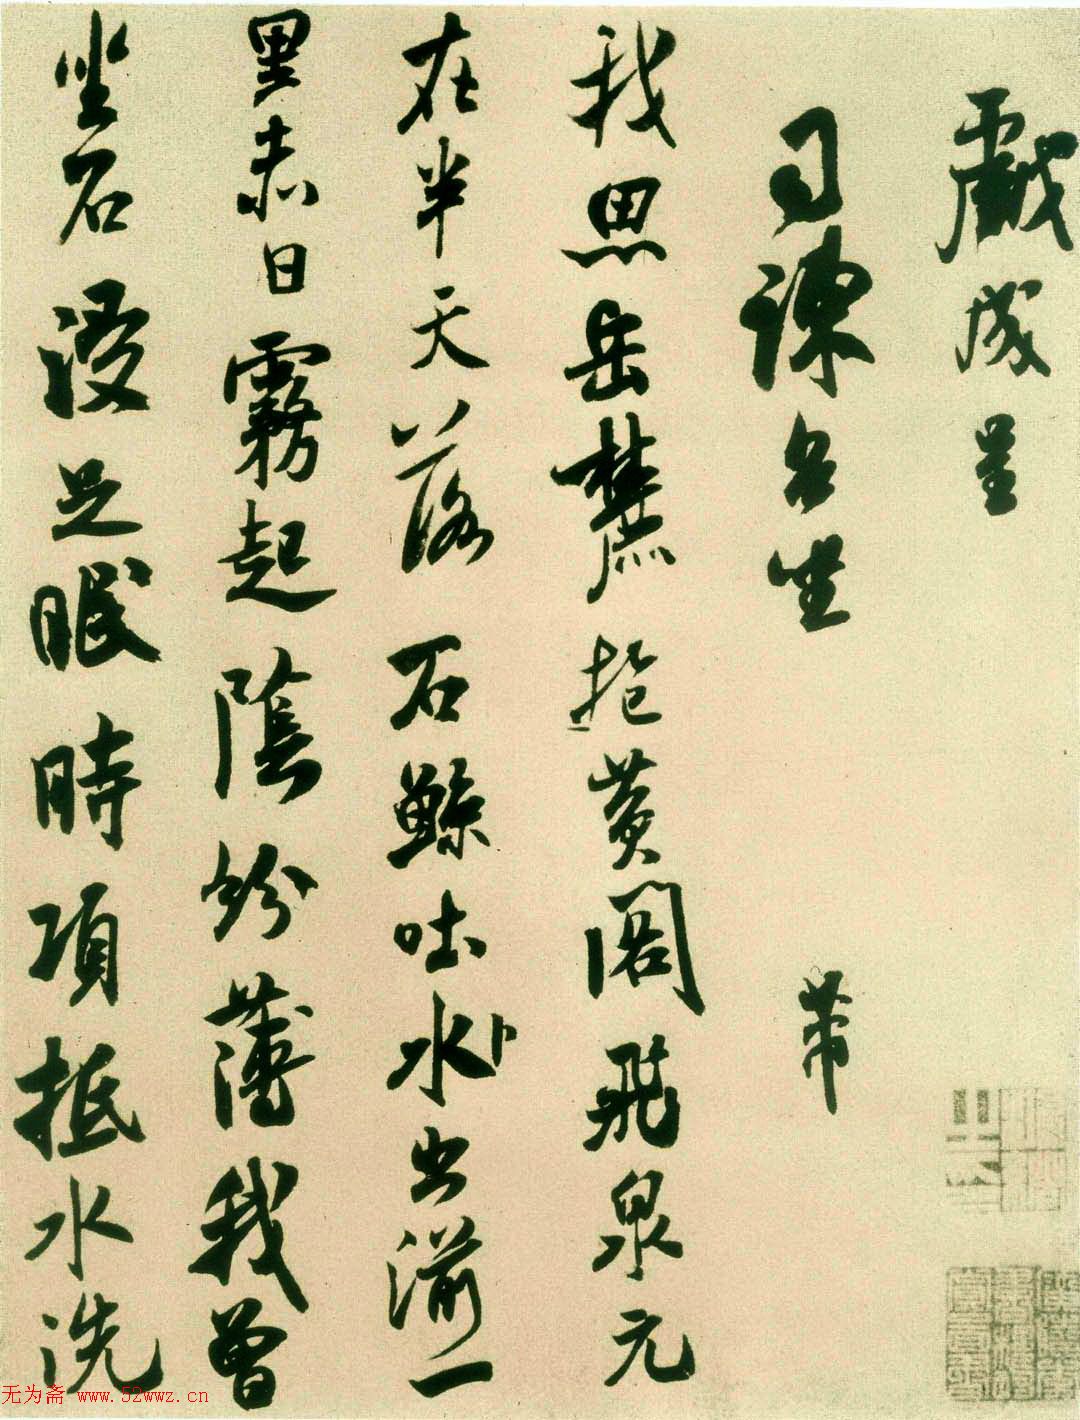 戲成呈
司諫台坐 芾
我思岳麓抱黃閣飛泉元
在半天落石鯨吐水出湔一
里赤日霧起陰紛薄我曾
坐石浸足眠時項抵水洗
无为斋 www.52wwz.cn